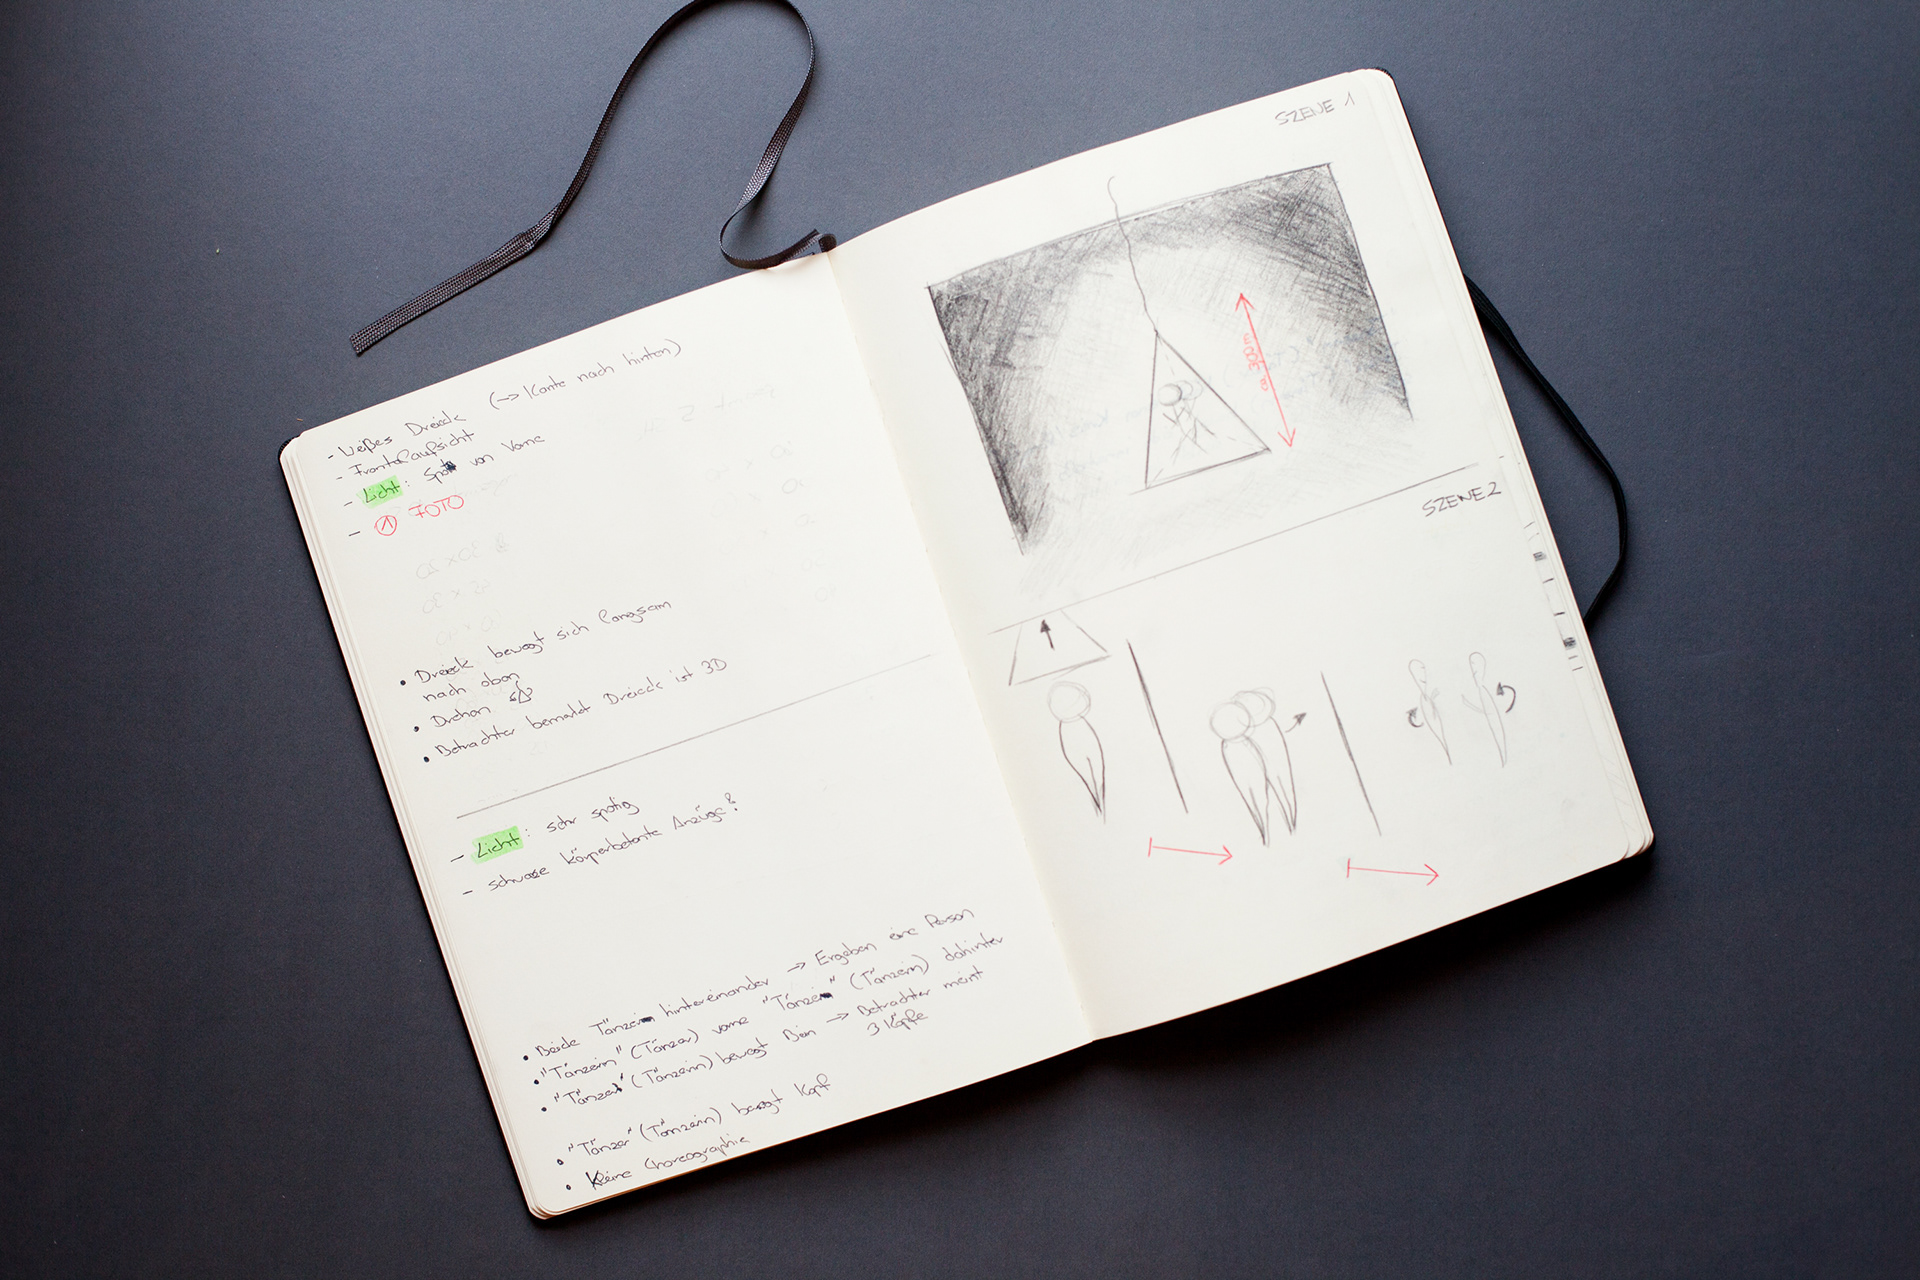 - Weißes Dreieck (-> Kante nach hinten)
- Frontalaufsicht
- Licht: Spot von Vorne
- ① FOTO
• Dreieck bewegt sich langsam
nach oben
• Drehen
• Betrachter bemerkt Dreieck ist 3D
- Licht: sehr spotig
- schwarze körperbetonte Anzüge?
• Beide Tänzerin hintereinander -> Ergeben eine Person
• "Tänzerin" (Tänzer) vorne "Tänzer" (Tänzerin) dahinter
• "Tänzer" (Tänzerin) bewegt Bein -> Betrachter meint
3 Köpfe
• "Tänzer" (Tänzerin) bewegt Kopf
• Kleine Choreographie
SZENE 1
SZENE 2